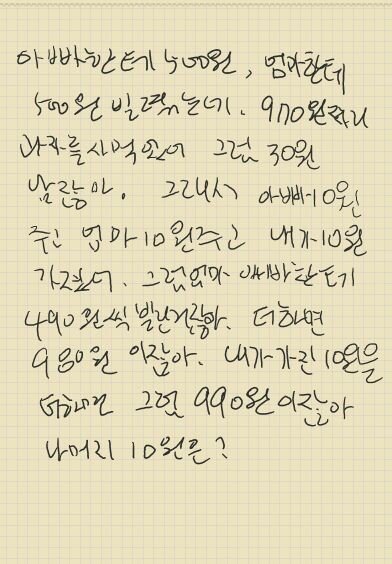 아빠한테 500원, 엄마한테
500원 빌렸는데. 970원짜리
과자를 사먹었어 그럼 30원
남잖아. 그래서 아빠 10원
주고 엄마 10원 주고 내가 10원
가졌어. 그럼 엄마 아빠한테
490원씩 빌린거잖아. 더하면
980원 이잖아. 내가 가진 10원을
더하면 그럼 990원 이잖아
나머지 10원은?